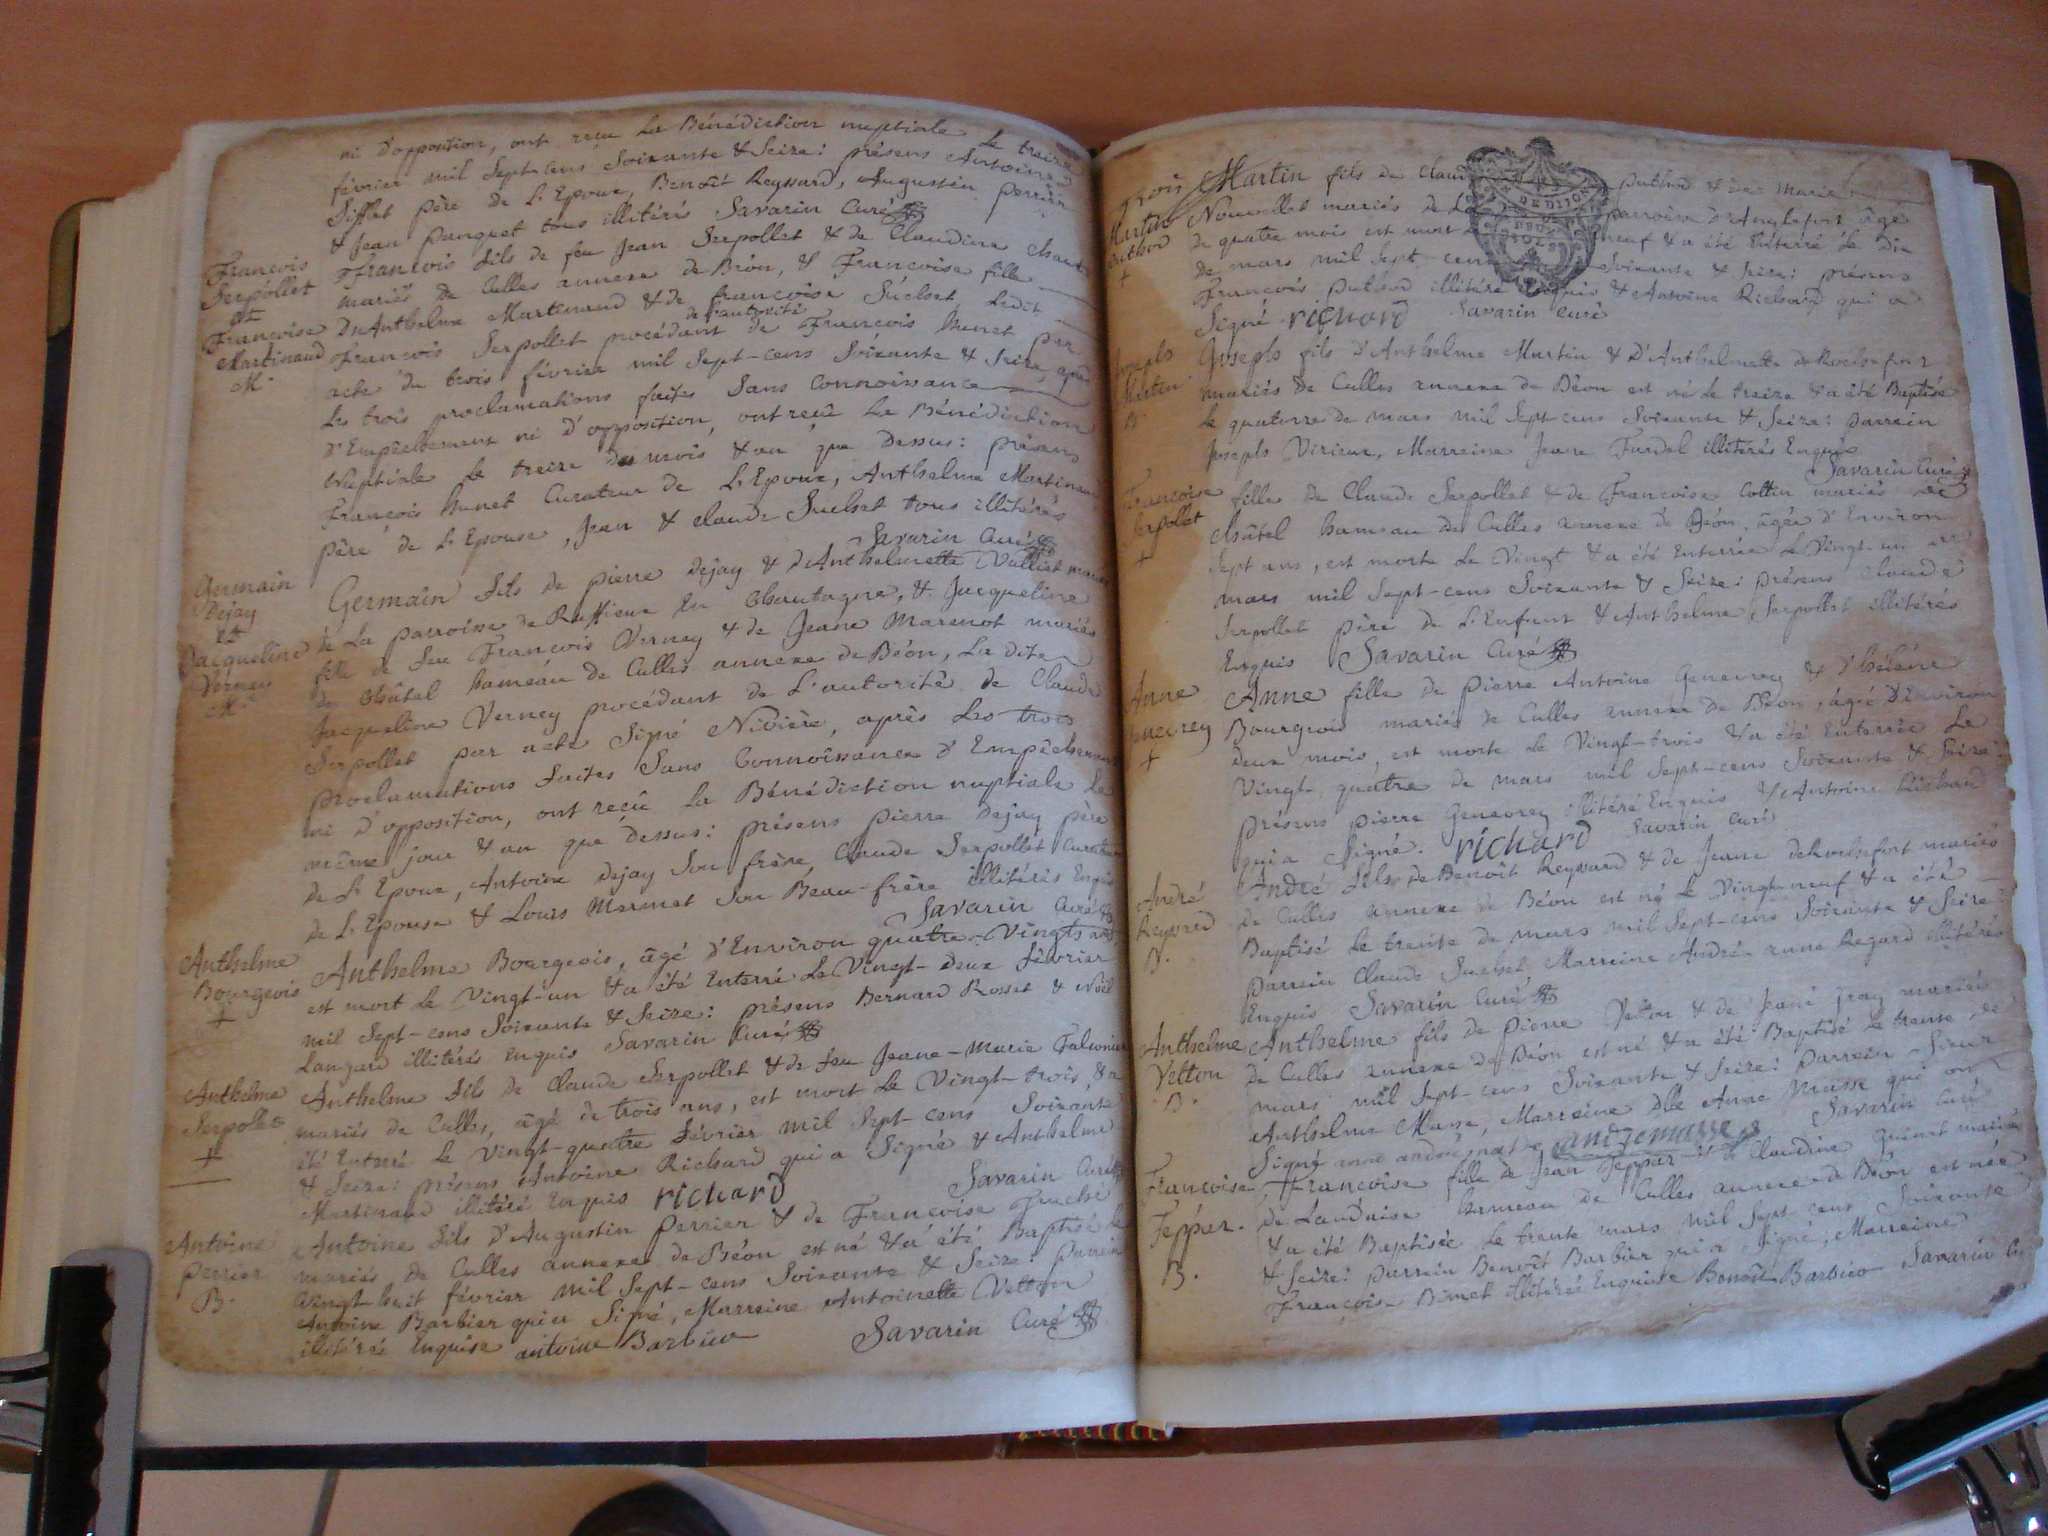 ni d'opposition, ont reçu La Bénédiction nuptiale Le treize
février mil Sept-cens Soixante & Seize: présens Antoine
Sifflet père de L'Epoux, Benoît Reyssard, Augustin perrier
& Jean panquet tous illitérés Savarin Curé
François
Serpollet
et
Françoise
Martinaud
M.
François fils de feu Jean Serpollet & de Claudine
mariés de Culles annexe de Béon, & Françoise fille
D'Anthelme Martinaud & de françoise Suchet, Ledit
de l'autorité
François Serpollet procédant de François hunet par
acte du trois février mil Sept-cens Soixante & Seize, après
Les trois proclamations faites Sans Connoissance
d'Empêchement ni d'opposition, ont reçu La Bénédiction
Nuptiale Le treize du mois & an que Dessus: présens
François hunet Curateur de L'Epoux, Anthelme Martinaud
père de L'Epouse, Jean & claude Suchet tous illitérés
Savarin Curé
Germain
Dejay
et
Jacqueline
Verney
M.
Germain fils de pierre Dejay & d'Anthelmette Valliet mariés
de La parroisse de Ruffieux En Chautagne, & Jacqueline
fille de feu François Verney & de Jeane Marmot mariés
de Châtel hameau de Culles annexe de Béon, La dite
Jacqueline Verney procédant de L'autorité de Claude
Serpollet par acte Signé Nivière, après Les trois
proclamations faites Sans Connoissance d'Empêchement
ni d'opposition, ont reçu La Bénédiction nuptiale Le
même jour & an que dessus: présens pierre Dejay père
de L'Epoux, Antoine Dejay Son frère, Claude Serpollet Curateur
de L'Epouse & Louis Mermet Son Beau-frère illitérés Enquis
Savarin Curé
Anthelme
Bourgeois
+
Anthelme Bourgeois, âgé d'Environ quatre-Vingts ans
est mort Le Vingt-un & a été Enterré Le Vingt-Deux février
mil Sept-cens Soixante & Seize: présens Bernard Rosset & Noël
Langard illitérés Enquis Savarin Curé
Anthelme
Serpolet
+
Anthelme fils de Claude Serpollet & de feu Jeane-Marie Falconier
mariés de Culles, âgé de trois ans, est mort Le Vingt-trois, & a
été Enterré Le Vingt-quatre février mil Sept-cens Soixante
& Seize: présens Antoine Richard qui a Signé & Anthelme
Martinaud illitéré Enquis richard Savarin Curé
Antoine
perrier
B.
Antoine fils d'Augustin perrier & de Françoise Truchi
mariés de Culles annexe de Béon est né & a été Baptisé le
Vingt-huit février mil Sept-cens Soixante & Seize: parrain
Antoine Barbier qui a Signé, Marreine Antoinette Vetton
illitérée Enquise antoine Barbier Savarin Curé
Martin
+
Martin fils de Claude puthod & de Marie
Nouvellet mariés de parroisse d'Anglefort âgé
de quatre mois est mort neuf & a été Enterré le Dix
de mars mil Sept-cens Soixante & Seize: présens
François puthod illitéré Enquis & Antoine Richard qui a
Signé richard Savarin Curé
Joseph
Martin
B.
Joseph fils d'Anthelme Martin & D'Anthelmette de Rochefort
mariés de Culles annexe de Béon est né le treize & a été Baptisé
le quatorze de mars mil Sept-cens Soixante & Seize: parrein
Joseph Virieux, Marreine Jeane Furdel illitérés Enquis
Savarin Curé
Françoise
Serpollet
+
fille de Claude Serpollet & de Françoise Cottin mariés de
Châtel hameau de Culles annexe de Béon, âgée d'Environ
Sept ans, est morte Le Vingt & a été Enterrée Le Vingt-un
mars mil Sept-cens Soixante & Seize: présens Claude
Serpollet père de L'Enfant & Anthelme Serpollet illitérés
Enquis Savarin Curé
Anne
Genevrey
+
Anne fille de pierre Antoine Genevrey & d'hélène
Bourgeois mariés de Culles annexe de Béon, âgée D'Environ
deux mois, est morte Le Vingt-trois & a été Enterrée Le
Vingt-quatre de mars mil Sept-cens Soixante & Seize:
présens pierre Genevrey illitéré Enquis & Antoine Richard
qui a Signé. richard Savarin Curé
André
Reyssard
B.
André fils de Benoît Reyssard & de Jeane deRochefort mariés
de Culles annexe de Béon est né Le Vingt-neuf & a été
Baptisé Le trente de mars mil Sept-cens Soixante & Seize:
parrein Claude Suchet, Marreine André-anne Regard illitérés
Enquis Savarin Curé
Anthelme
Vetton
B.
Anthelme fils de pierre Vetton & de Jeane Jray mariés
de Culles annexe de Béon est né & a été Baptisé Le trente de
mars mil Sept-cens Soixante & Seize: parrein Sieur
Anthelme Masse, Marreine Dlle Anne Masse qui ont
Signé Savarin Curé
Françoise
Feppar.
B.
Françoise fille de Jean Feppar & de Claudine Guinet mariés
de Landaise hameau de Culles annexe de Béon est née
& a été Baptisée Le trente mars mil Sept-cens Soixante
& Seize: parrein Benoît Barbier qui a Signé, Marreine
Françoise Binet illitérée Enquise Benoît Barbier Savarin